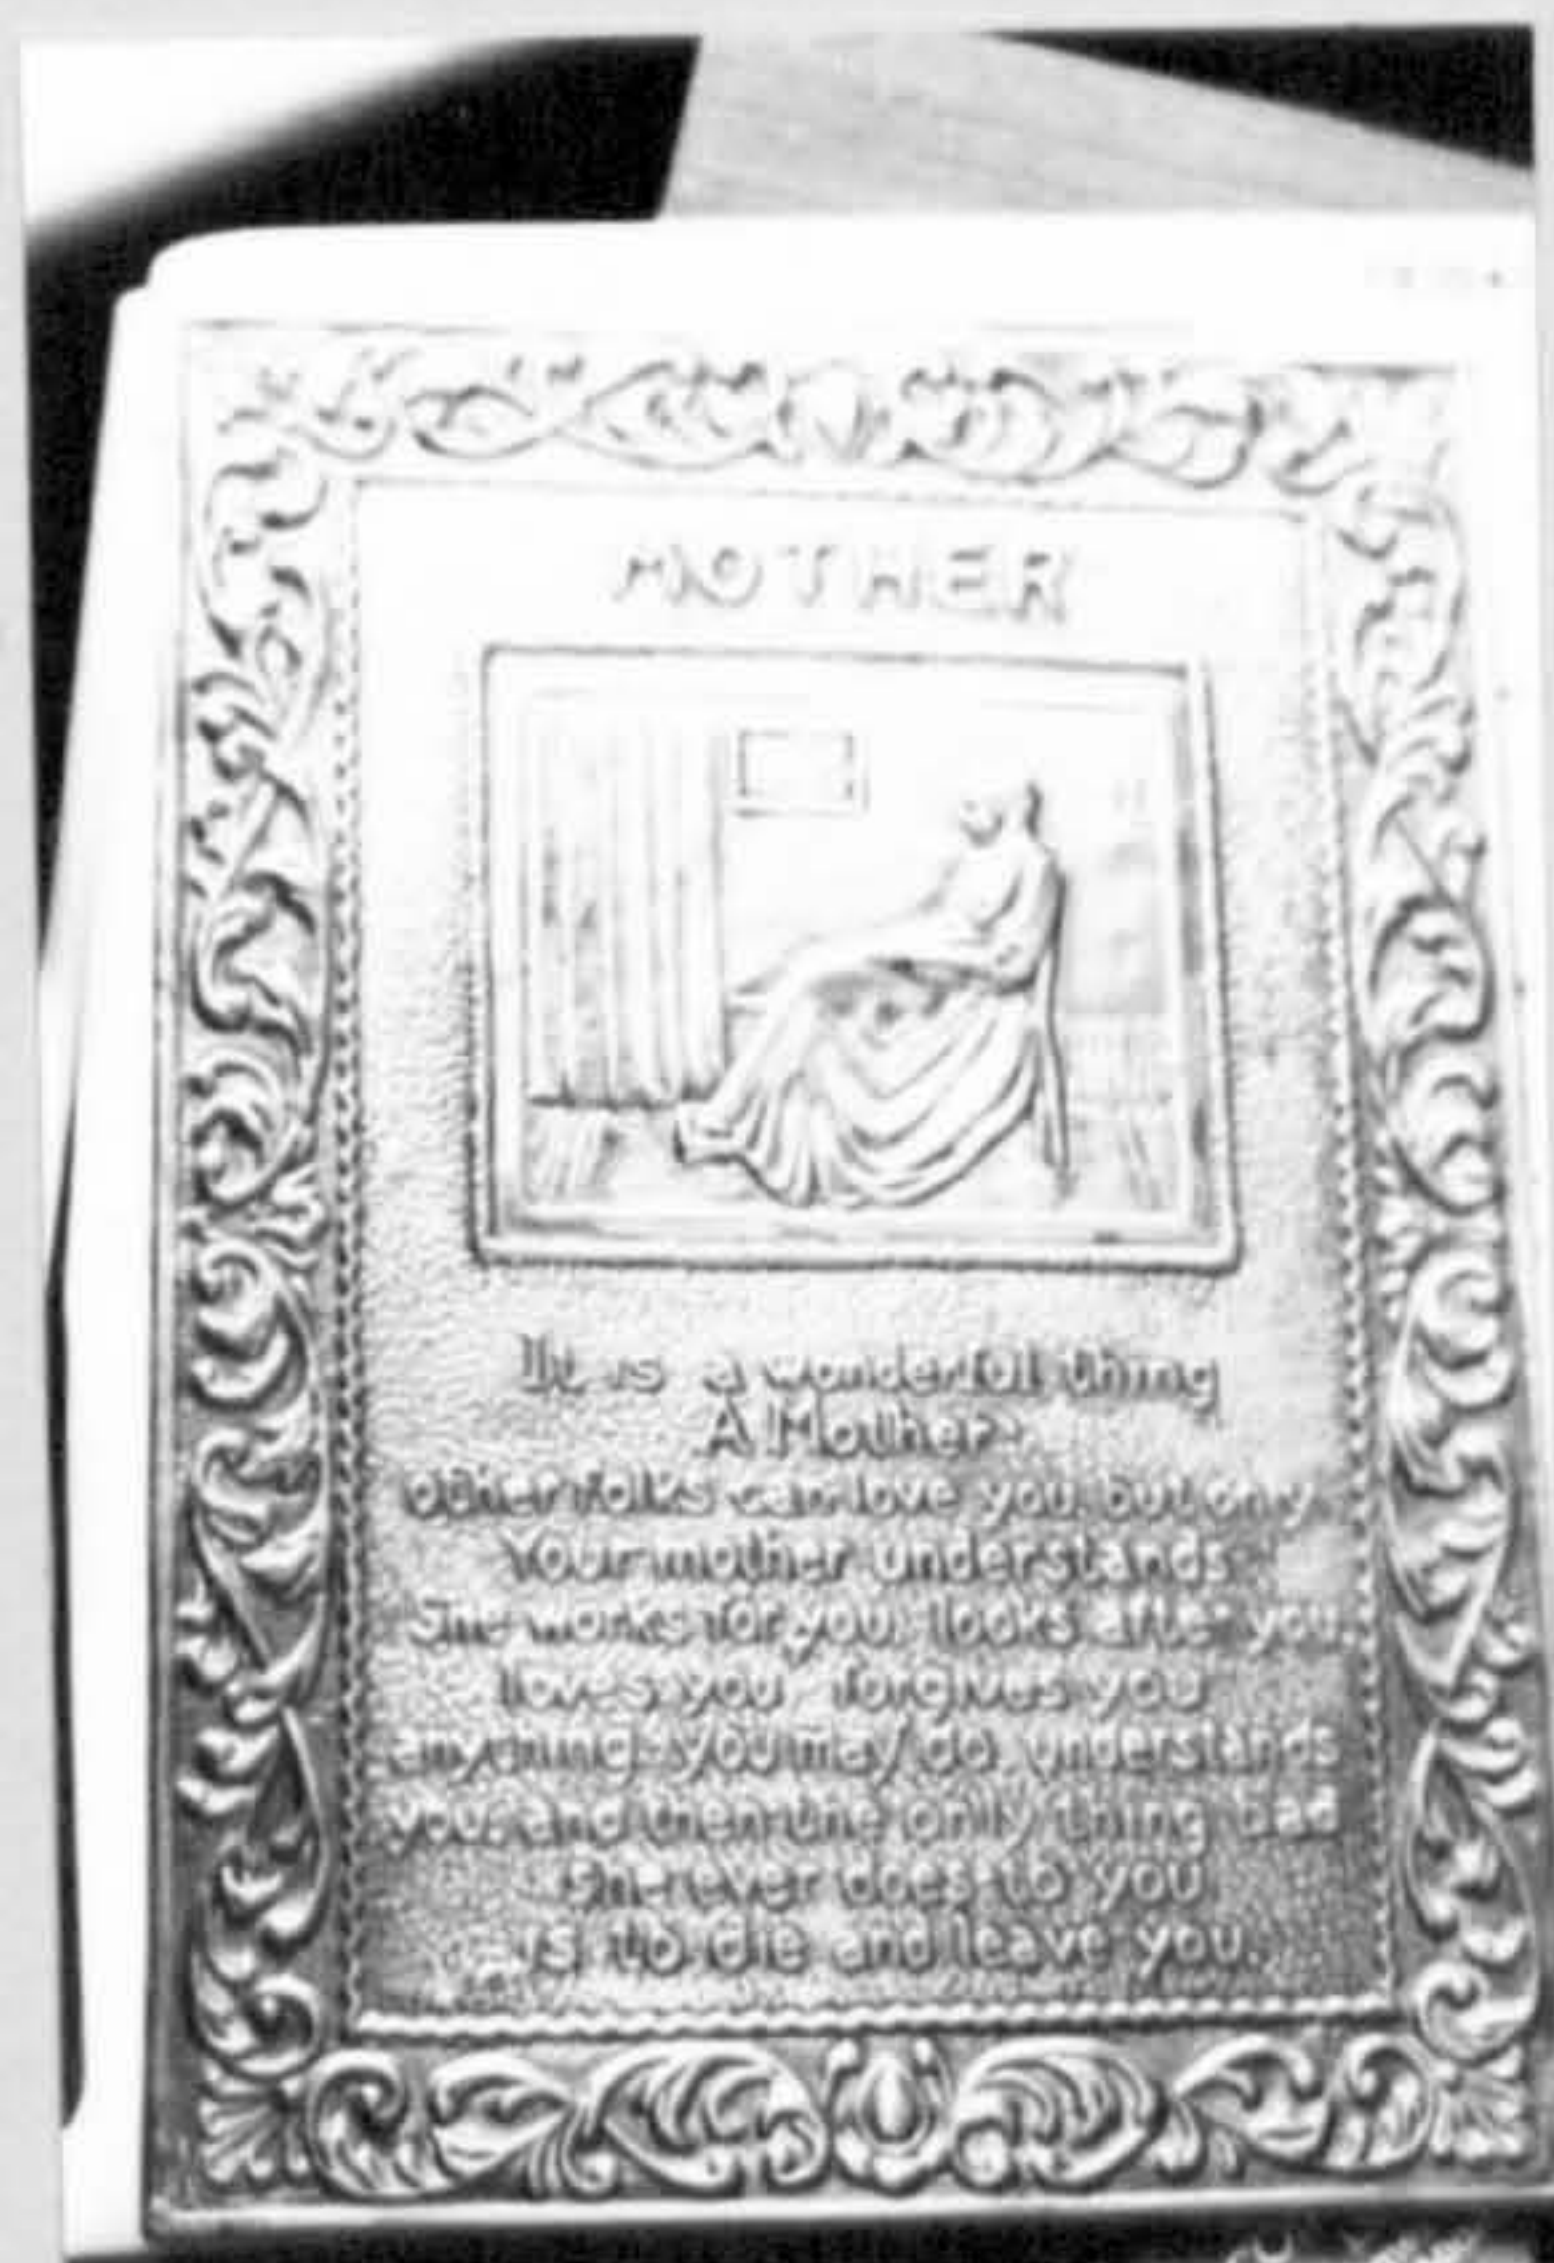 MOTHER
It is a wonderful thing
A Mother
other folks can love you but only
Your mother understands
She works for you, looks after you,
loves you forgives you
anything you may do understands
you, and then the only thing bad
She ever does to you
is to die and leave you.